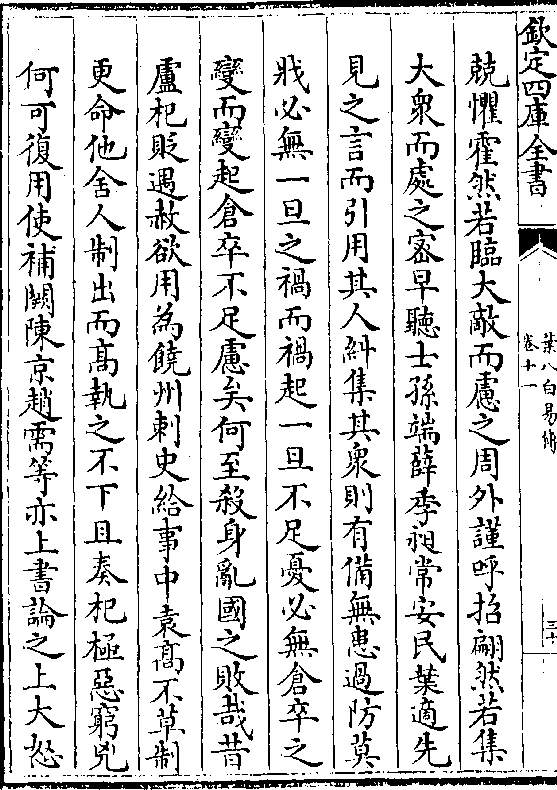 欽定四庫全書
葉八白易傳
卷十一
三十
兢懼霍然若臨大敵而慮之周外謹呼招翩然若集
大衆而處之密早聽士孫端薛季昶常安民葉適先
見之言而引用其人糾集其衆則有備無患過防莫
戕必無一旦之禍而禍起一旦不足憂必無倉卒之
變而變起倉卒不足慮矣何至殺身亂國之敗哉昔
盧杞貶遇赦欲用為饒州刺史給事中袁高不草制
更命他舍人制出而高執之不下且奏杞極惡窮兇
何可復用使補闕陳京趙需等亦上書論之上大怒